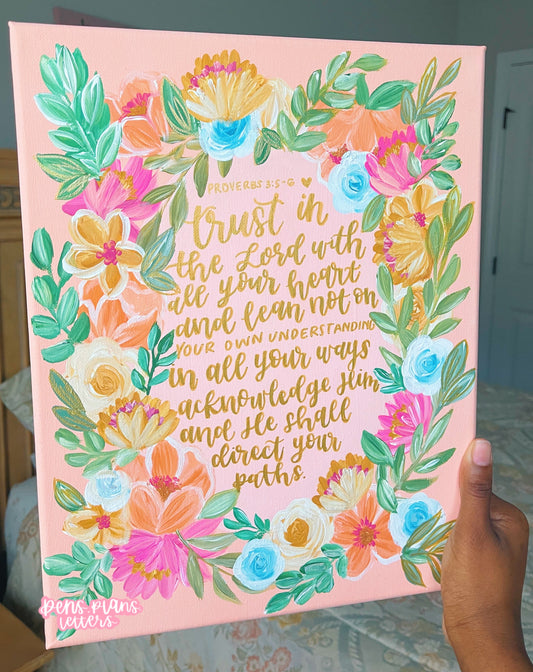 PROVERBS 3:5-6
trust in
the Lord with
all your heart
and lean not on
YOUR OWN UNDERSTANDING
in all your ways
acknowledge Him
and He shall
direct your
paths.
pens.plans.
letters